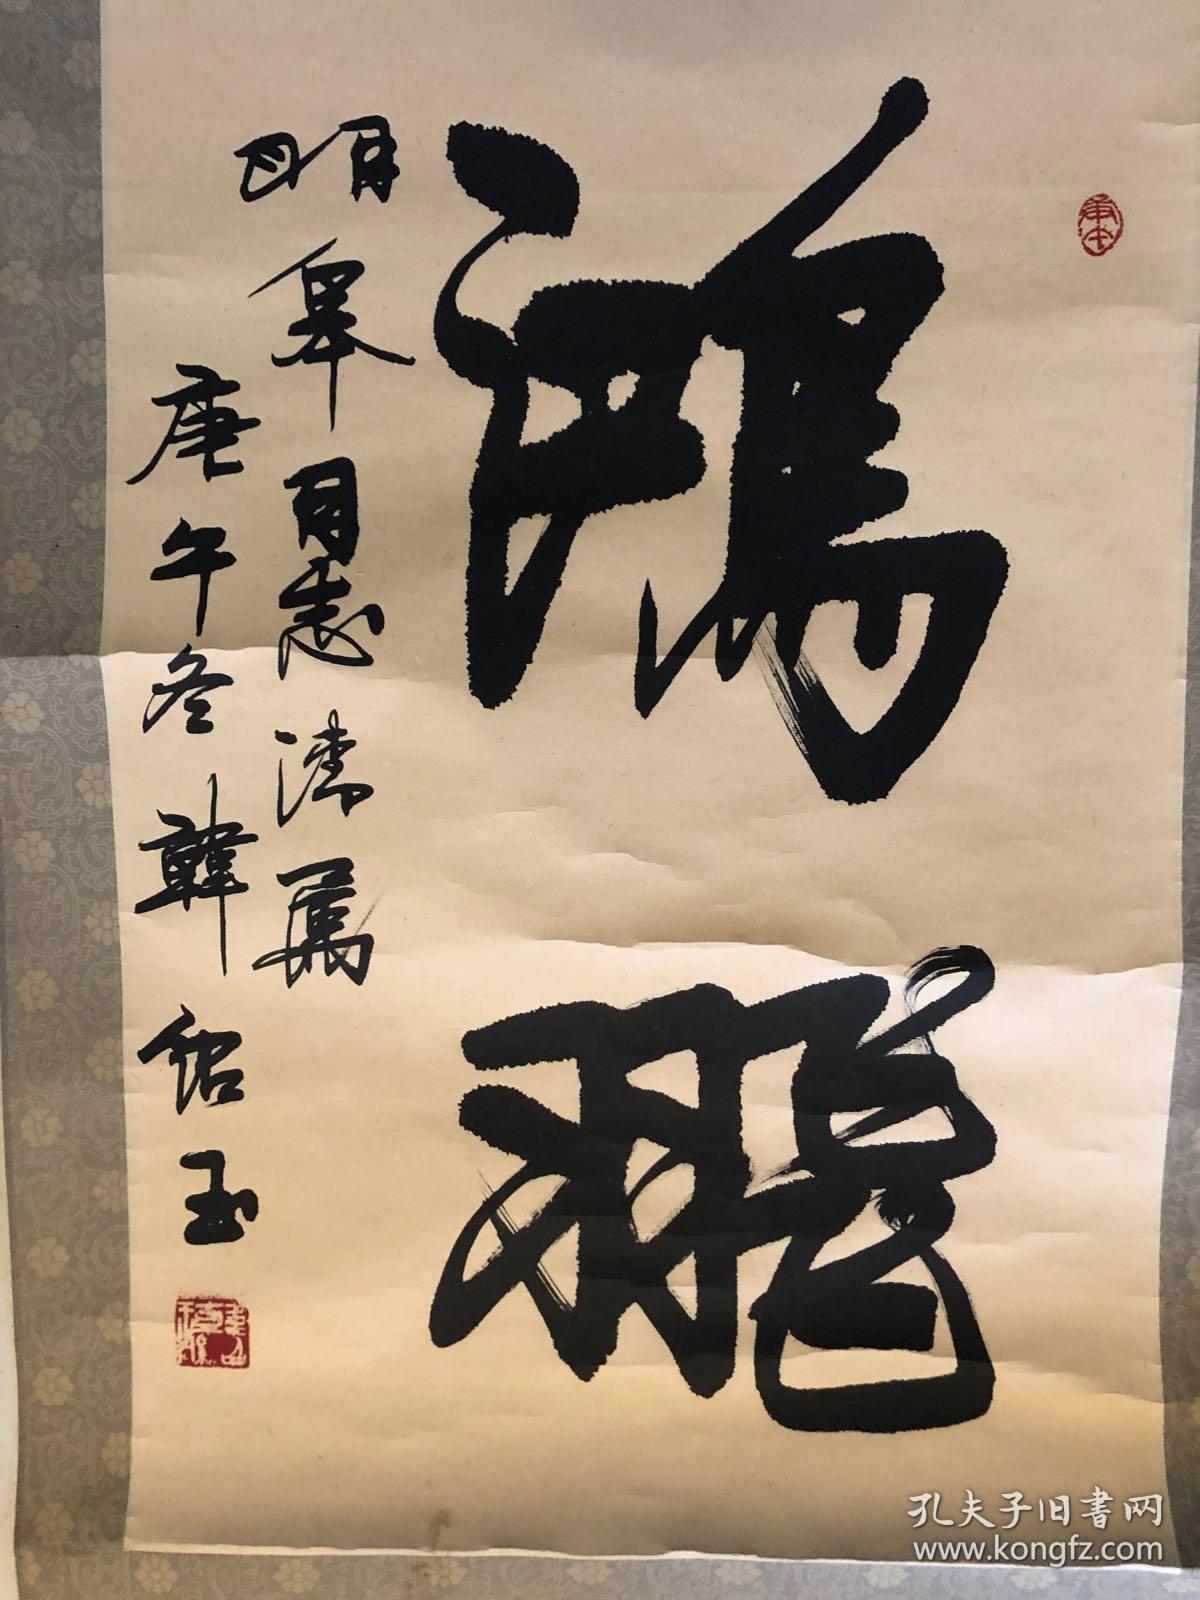 庚午
鴻
明皋同志清属
庚午冬韓紹玉
孔夫子旧書网
www.kongfz.com